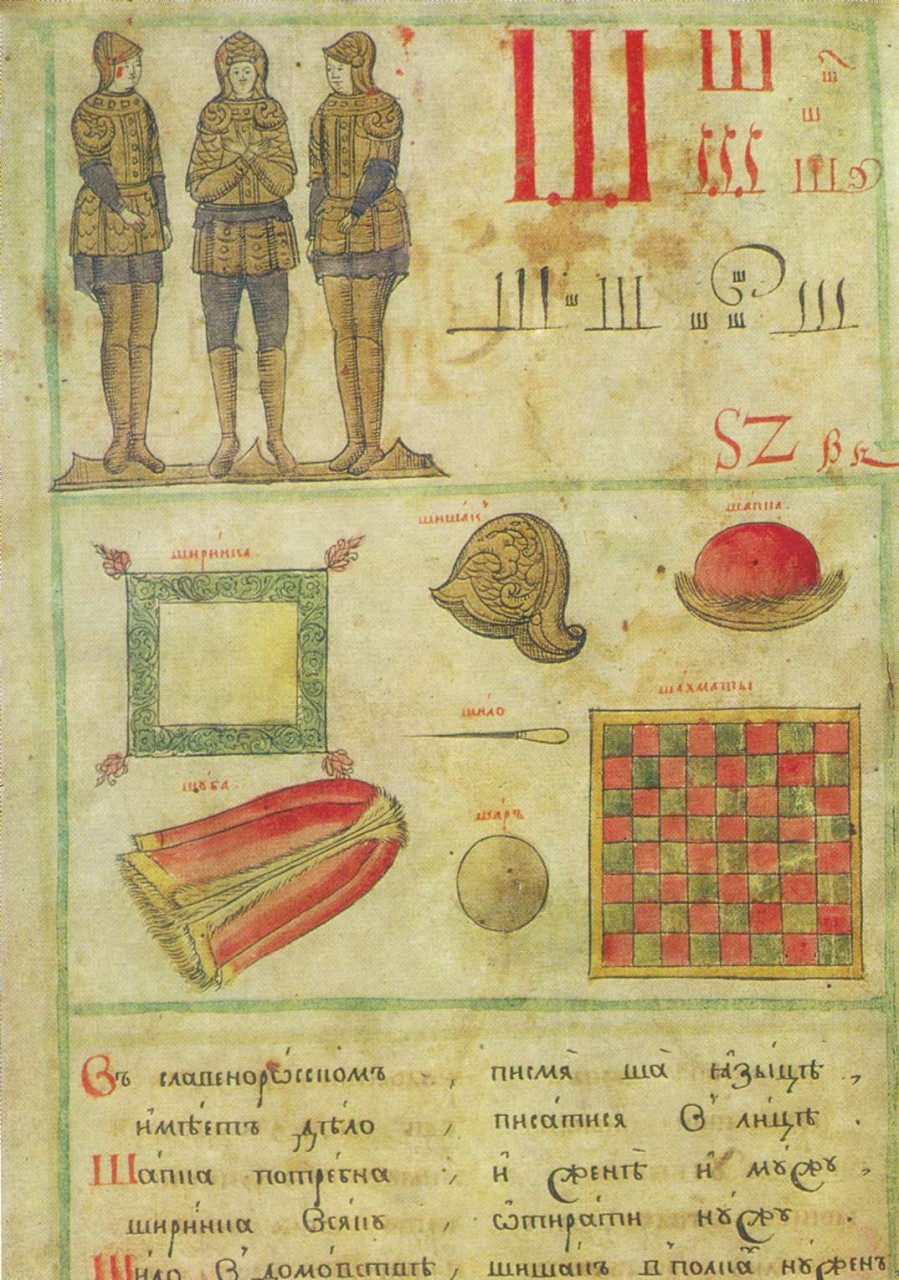 Ш Ш ш ш
ш Ш
Ш ш Ш ш ш ш Ш
S Z
ширинка . шишакъ шапка .
шило шахматы
шуба . шаръ
Въ славенорѡсскомъ , писмя ша ꙗзыцѣ ,
имѣетъ дѣло , писатися в лицѣ .
Шапка потребна , и женѣ и мꙋжꙋ ,
ширинка всякꙋ ѡтирати нꙋжꙋ .
Шило в домовствѣ , шишакъ в полка нꙋженъ